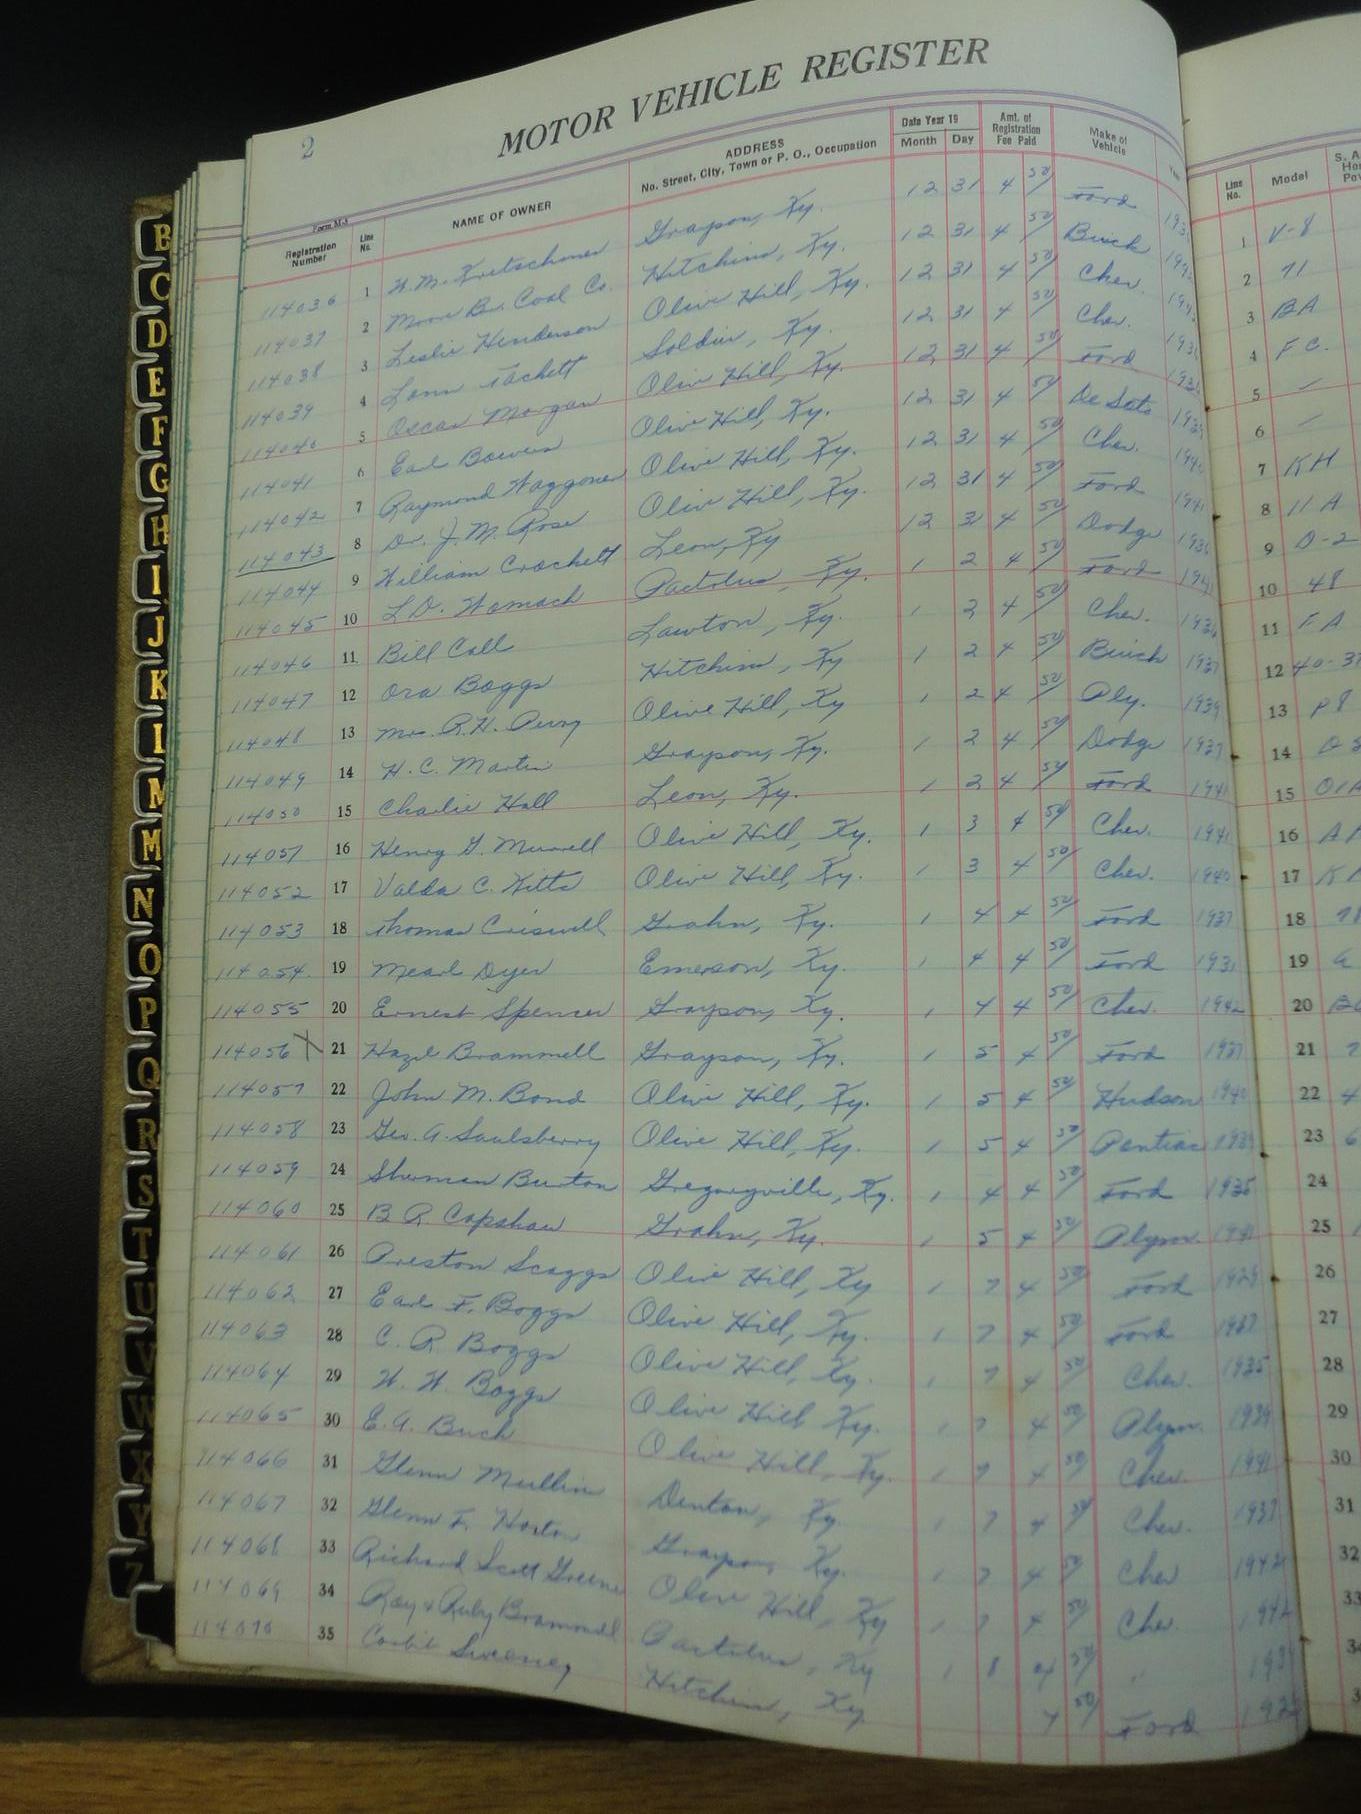 2
MOTOR VEHICLE REGISTER
Form M-3
Registration Number Line No. NAME OF OWNER ADDRESS No. Street, City, Town or P. O., Occupation Date Year 19 Month Day Amt. of Registration Fee Paid Make of Vehicle
114036 1 W.M. Kretschmer Grayson, Ky. 12 31 4 50 Ford
114037 2 Moore Br. Coal Co. Hitchins, Ky. 12 31 4 50 Buick
114038 3 Leslie Henderson Olive Hill, Ky. 12 31 4 50 Chev.
114039 4 Lonn Tackett Soldier, Ky. 12 31 4 50 Chev.
114040 5 Oscar Morgan Olive Hill, Ky. 12 31 4 50 Ford
114041 6 Earl Bowen Olive Hill, Ky. 12 31 4 50 De Soto
114042 7 Raymond Waggoner Olive Hill, Ky. 12 31 4 50 Chev.
114043 8 Dr. J. M. Rose Olive Hill, Ky. 12 31 4 50 Ford
114044 9 William Crockett Leon, Ky 12 31 4 50 Dodge
114045 10 L.D. Womack Pactolus, Ky. 1 2 4 50 Ford
114046 11 Bill Call Lawton, Ky. 1 2 4 50 Chev.
114047 12 Ora Boggs Hitchins, Ky 1 2 4 50 Buick 1937
114048 13 Mrs. R.H. Perry Olive Hill, Ky 1 2 4 50 Ply. 1939
114049 14 H. C. Martin Grayson, Ky. 1 2 4 50 Dodge 1937
114050 15 Charlie Hall Leon, Ky. 1 2 4 50 Ford 1941
114051 16 Henry G. Murrell Olive Hill, Ky. 1 3 4 50 Chev. 1941
114052 17 Valda C. Kitts Olive Hill, Ky. 1 3 4 50 Chev. 1940
114053 18 Thomas Criswell Grahn, Ky. 1 4 4 50 Ford 1937
114054 19 Mearl Dyer Emerson, Ky. 1 4 4 50 Ford 1931
114055 20 Ernest Spencer Grayson, Ky. 1 4 4 50 Chev. 1942
114056 X 21 Hazel Brammell Grayson, Ky. 1 5 4 50 Ford 1937
114057 22 John M. Bond Olive Hill, Ky. 1 5 4 50 Hudson 1940
114058 23 Geo. A. Saulsberry Olive Hill, Ky. 1 5 4 50 Pontiac
114059 24 Sherman Burton Gregoryville, Ky. 1 4 4 50 Ford 1935
114060 25 B R Capshaw Grahn, Ky. 1 5 4 50 Plym 1941
114061 26 Preston Scaggs Olive Hill, Ky 1 7 4 50 Ford 1929
114062 27 Earl F. Boggs Olive Hill, Ky. 1 7 4 50 Ford 1937
114063 28 C. R. Boggs Olive Hill, Ky. 1 7 4 50 Chev. 1935
114064 29 W. W. Boggs Olive Hill Ky. 1 7 4 50 Plym. 1939
114065 30 E. A. Buck Olive Hill, Ky. 1 7 4 50 Chev. 1941
114066 31 Glenn Mullins Denton, Ky. 1 7 4 50 Chev. 1937
114067 32 Glenn F. Horton Grayson, Ky. 1 7 4 50 Chev 1942
114068 33 Richard Scott Greene Olive Hill, Ky 1 7 4 50 Chev.
114069 34 Ray & Ruby Brammell Pactolus, Ky 1 8 4 50
114070 35 Corbit Sweeney Hitchins, Ky 4 50 Ford
Line No. Model
1 V-8
2 71
3 BA
4 FC.
5 —
6 —
7 KH
8 11 A
9 D-2
10 48
11 FA
12
13 P8
14
15
16
17
18
19
20
21
22
23
24
25
26
27
28
29
30
31
32
33
B
C
D
E
F
G
H
I
J
K
M
N
O
P
Q
R
S
T
U
V
W
X
Y
Z